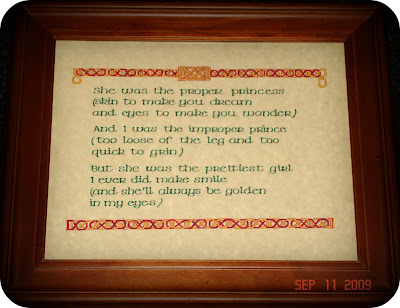 She was the proper princess
(skin to make you dream
and eyes to make you wonder)
And I was the improper prince
(too loose of the leg and too
quick to grin)
But she was the prettiest girl
I ever did make smile
(and she'll always be golden
in my eyes)
SEP 11 2009